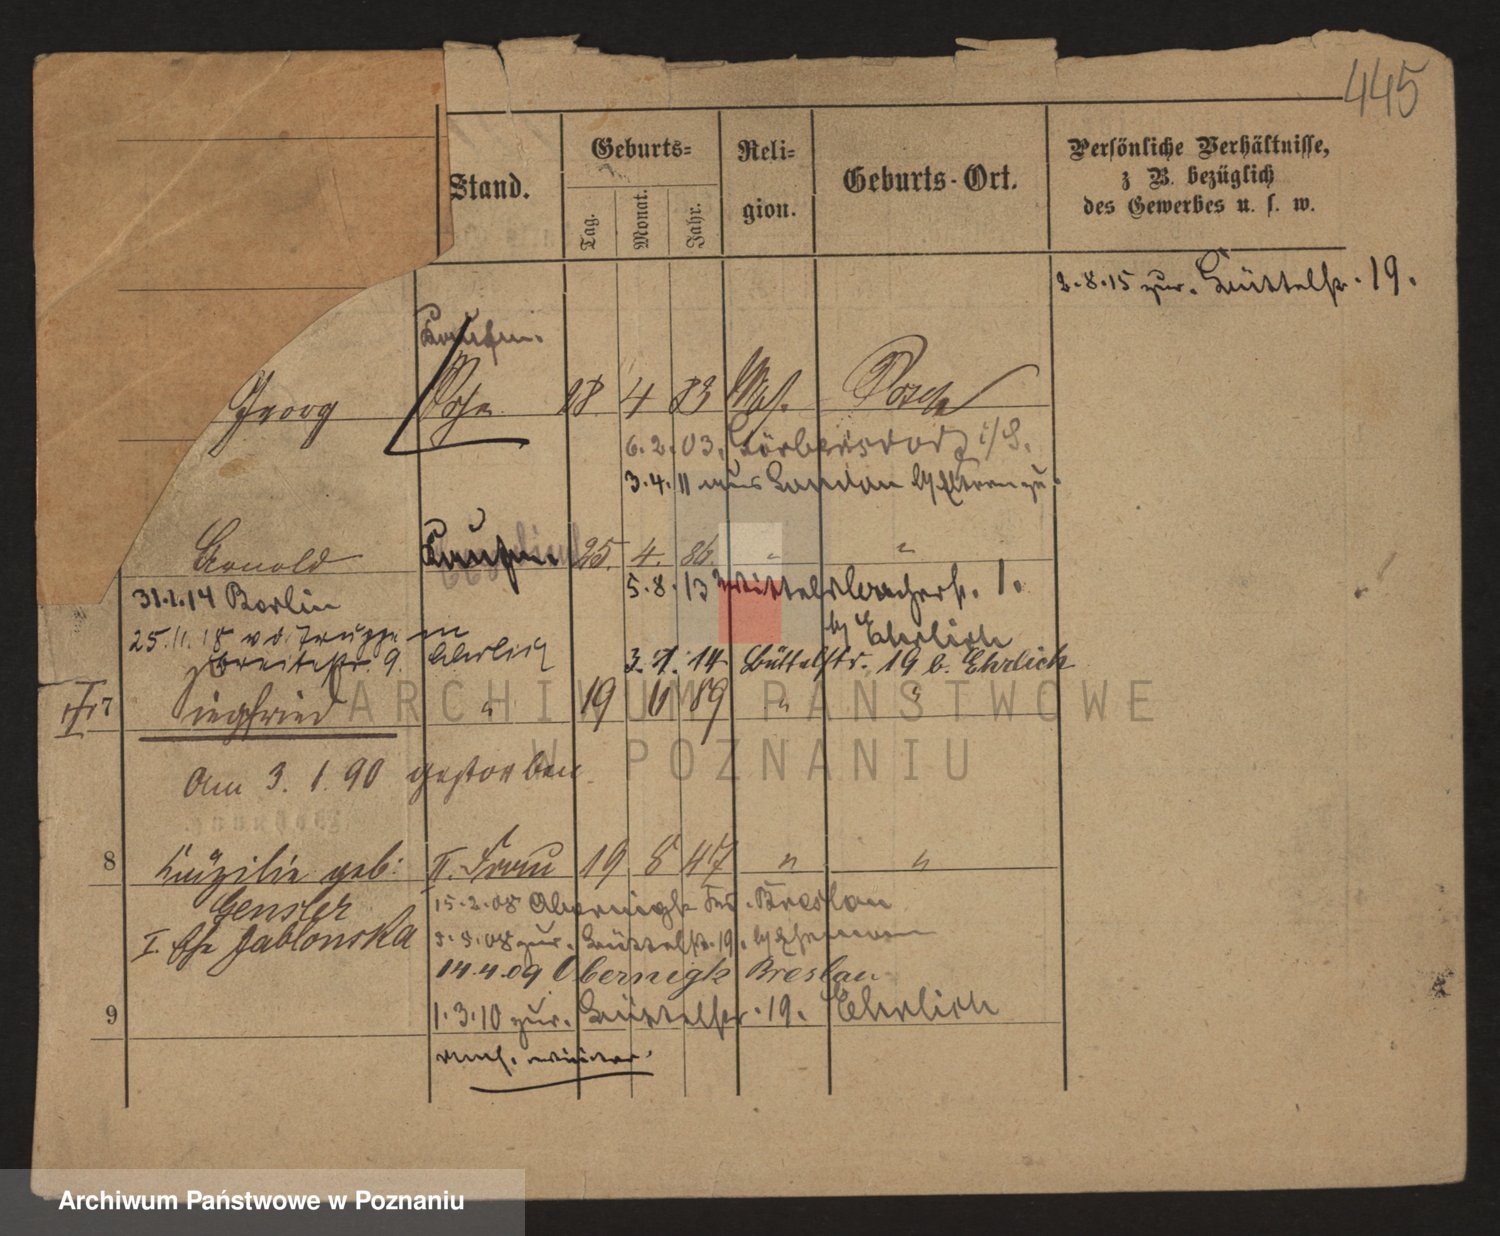 445
Stand.
Geburts-
Tag.
Monat.
Jahr.
Reli-
gion.
Geburts-Ort.
Persönliche Verhältnisse,
z B. bezüglich
des Gewerbes u. s. w.
2.8.15 zur. Büttelstr. 19.
Kaufm.
Georg 18 4 83 Posen
6.2.03. Görbersdorf i/S.
3.4.11 aus Landau
Arnold Kaufm. 25. 4. 86. " "
31.1.14 Berlin
5.8.13 Wittelsbacherstr. 1.
b/ Ehrlich
25.11.18 v. d. Truppe
Breitestr. 9. Ehrlich
3. 1. 14 Büttelstr. 19 b. Ehrlich
7 Siegfried " 19 6 89 " "
Am 3. 1. 90 gestorben
8 Cäzilie geb: II. Frau 19 8 47 " "
Gensler
15.2.08 Obernigk Breslau
I. Ehe Jablonska
8.8.08 zur. Büttelstr. 19.
14.4.09 Obernigk Breslau
9
1.3.10 zur. Büttelstr. 19. Ehrlich
ARCHIWUM PAŃSTWOWE
W POZNANIU
Archiwum Państwowe w Poznaniu